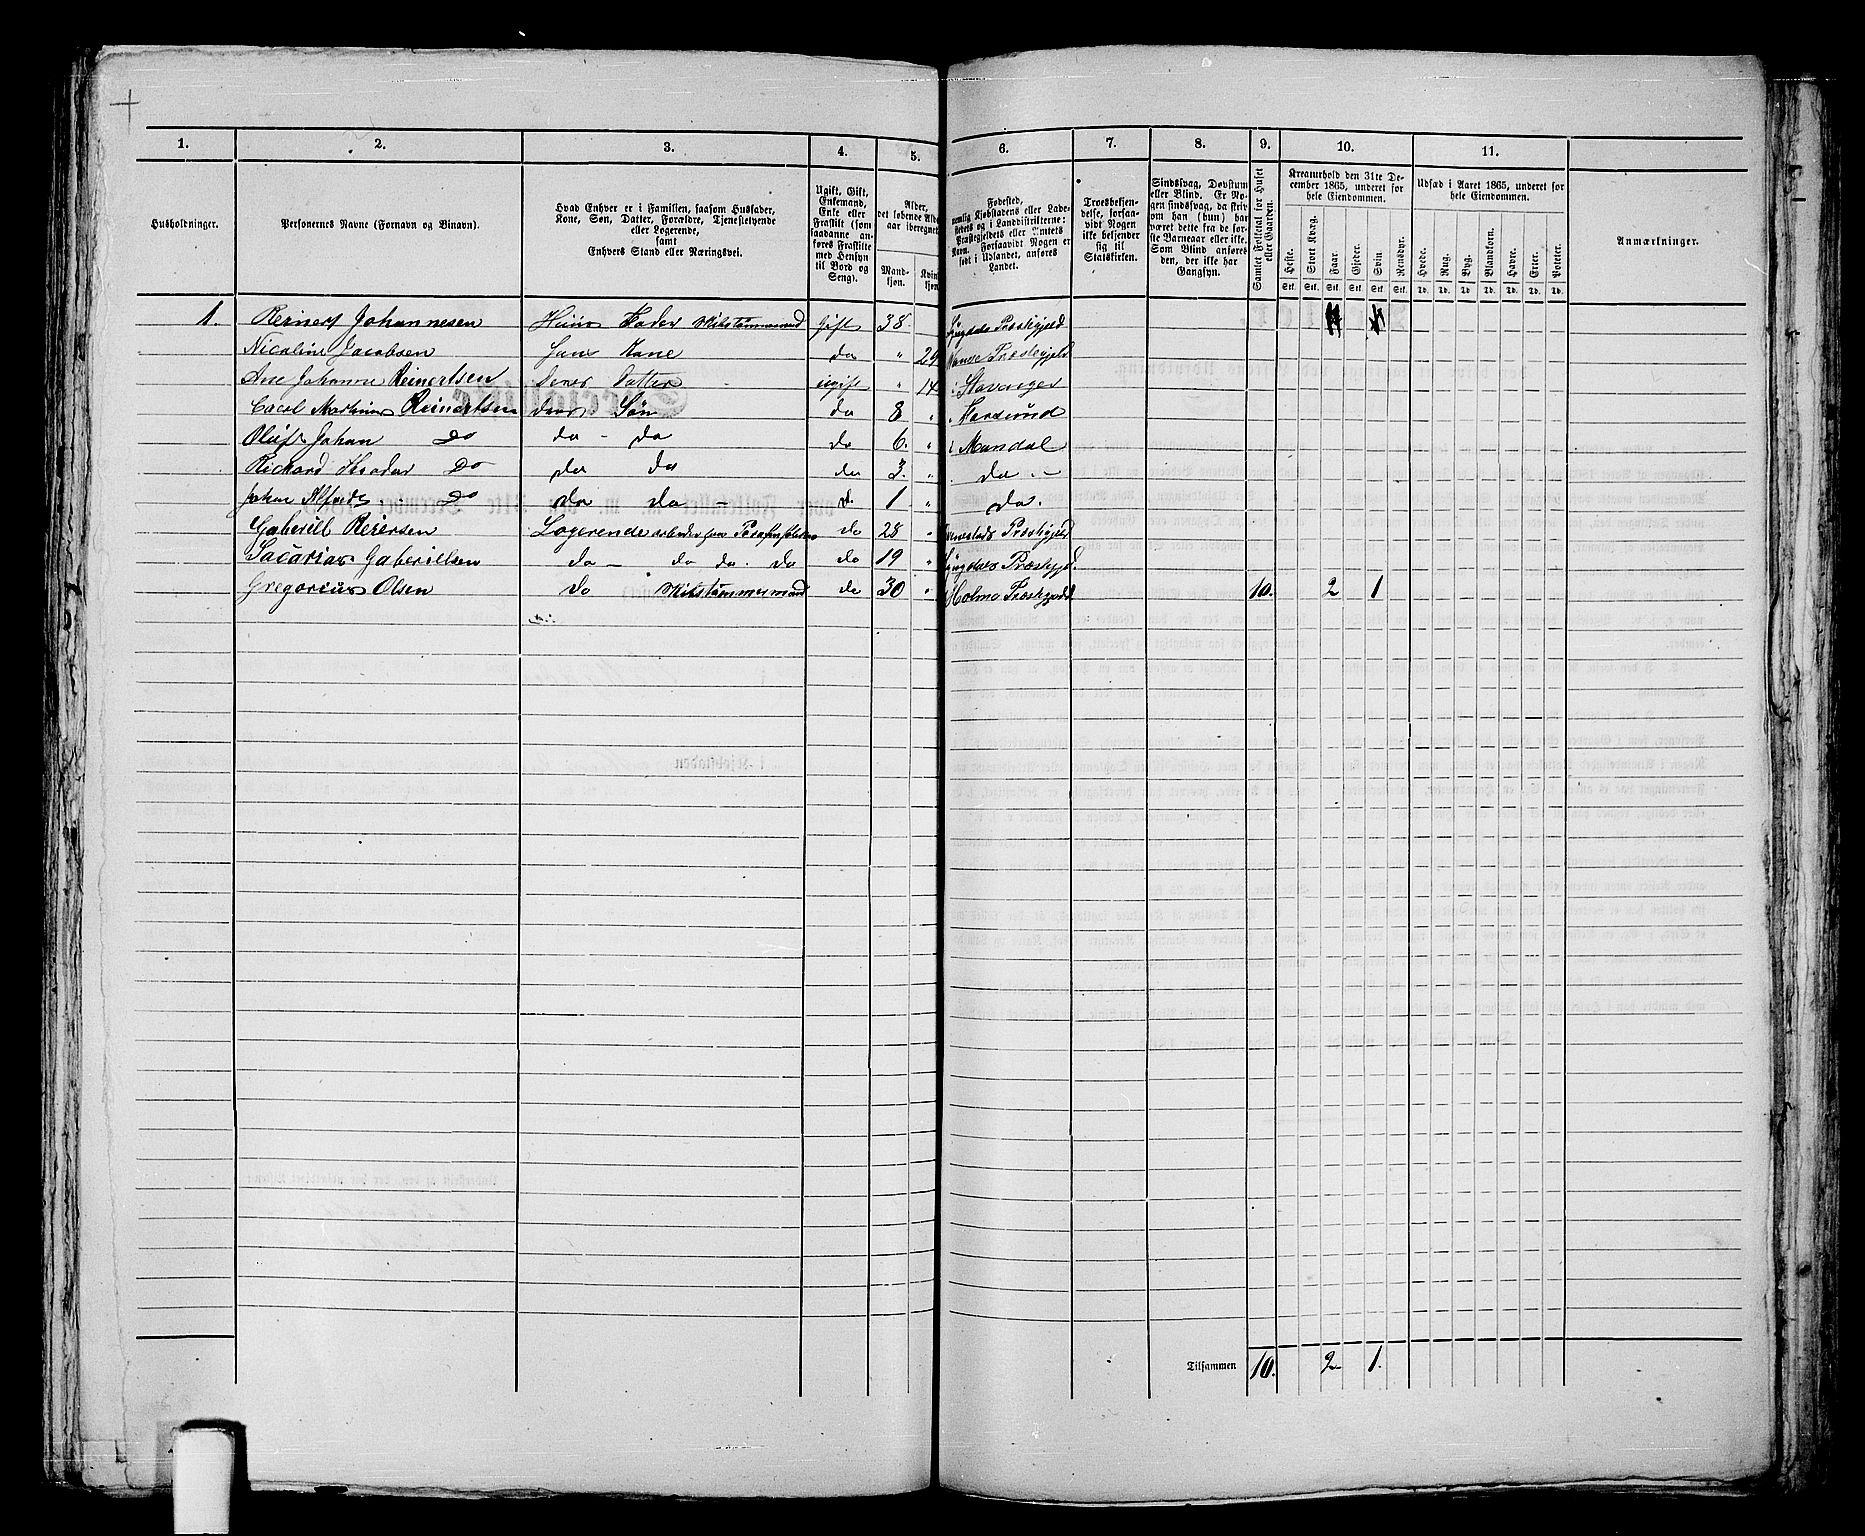 1. 2. 3. 4. 5. 6. 7. 8. 9. 10. 11.
Husholdninger.
Personernes Navne (Fornavn og Binavn).
Hvad Enhver er i Familien, saasom Husfader,
Kone, Søn, Datter, Forældre, Tjenestetyende
eller Logerende,
samt
Enhvers Stand eller Næringsvei.
Ugift, Gift,
Enkemand,
Enke eller
Fraskilt (som
saadanne an-
føres Fraskilte
med Hensyn
til Bord og
Seng).
Alder,
det løbende Alders-
aar iberegnet
Mand-
kjøn.
Kvin
kjøn
Fødested,
nemlig Kjøbstadens eller Lade-
stedets og i Landdistrikterne:
Præstegjeldets eller Amtets
Navn. Forsaavidt Nogen er
født i Udlandet, anføres
Landet.
Troesbekjen-
delse, forsaa-
vidt Nogen
ikke bekjender
sig til
Statskirken.
Sindssvag, Døvstum
eller Blind. Er No-
gen sindssvag, da skriv
om han (hun) har
været dette fra de før-
ste Barneaar eller ikke.
Som Blind anføres
den, der ikke har
Gangsyn.
Samlet Folketal for Huset
eller Gaarden.
Kreaturhold den 31te De-
cember 1865, underet for
hele Eiendommen.
Heste. Stort Kvæg. Faar. Gjeder. Svin Rensdyr.
Stk. Stk. Stk. Stk. Stk. Stk.
Udsæd i Aaret 1865, underet for
hele Eiendommen.
Hvede. Rug. Byg. Blandkorn. Havre. Erter. Poteter.
Td. Td. Td. Td. Td. Td. Td.
Anmærkninger.
1. Reinert Johannesen Huus Fader Mitstømmemand Gift 38 Lyngdals Præstegjeld
Nicoline Jacobsen Hans Kone do " 29 Vanse Præstegjeld
Ane Johanne Reinertsen Deres Datter ugift " 14 Stavanger
Carol Martinus Reinertsen deres Søn do 8 " Farsund
Oluf Johan Do do - do do 6. " Mandal
Richard Do do do do 3. " do -
Johan Alfred Do do do - d. 1 " do.
Gabriell Reiersen Logerende arbeider do 28 " Præstegjeld
Sacarias Gabriellsen do - do do. do do 19 " Lyngdals Præstegjd.
Gregorius Olsen do Mitstømmemand do 30 " Holme Præstegjeld 10. 2 1
Tilsammen 10. 2 1.